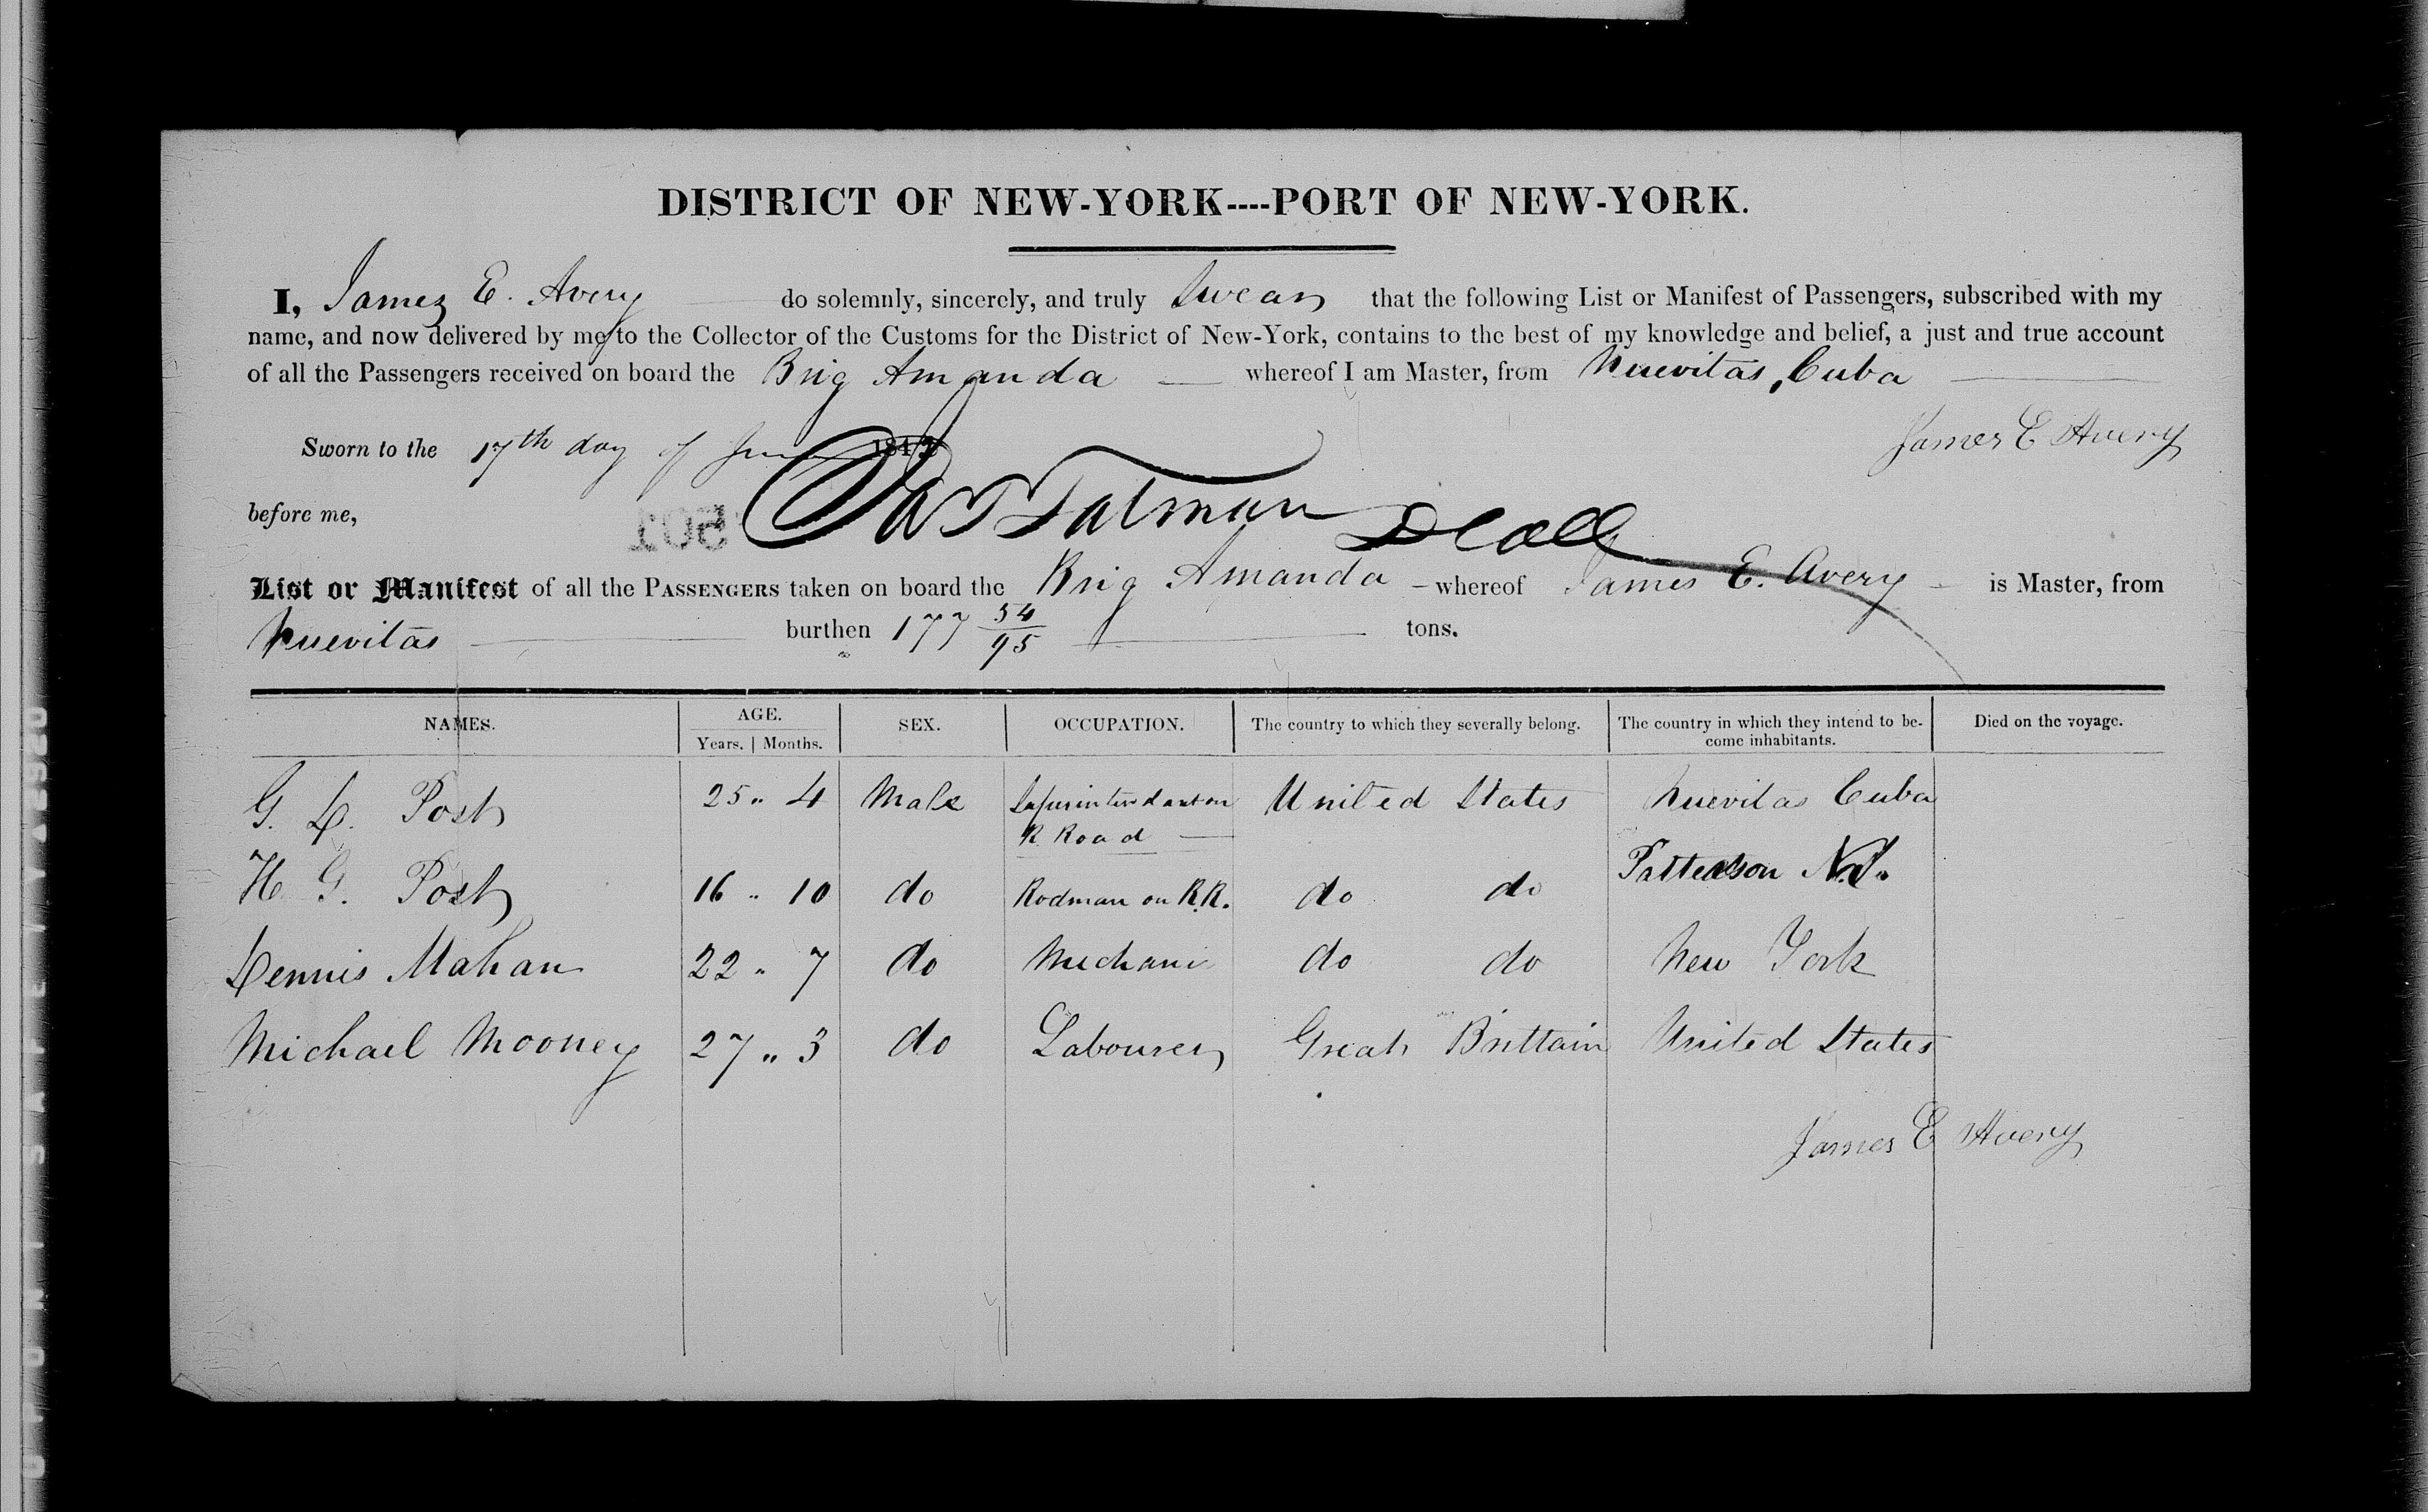 DISTRICT OF NEW-YORK----PORT OF NEW-YORK.
I, James E. Avery do solemnly, sincerely, and truly Swear that the following List or Manifest of Passengers, subscribed with my
name, and now delivered by me to the Collector of the Customs for the District of New-York, contains to the best of my knowledge and belief, a just and true account
of all the Passengers received on board the Brig Amanda whereof I am Master, from Nuevitas, Cuba
Sworn to the 17th day of June 184
James E Avery
before me,
Talman
List or Manifest of all the PASSENGERS taken on board the Brig Amanda whereof James E. Avery is Master, from
Nuevitas burthen 177 54/95 tons.
NAMES. AGE. SEX. OCCUPATION. The country to which they severally belong. The country in which they intend to be-
Years. Months. come inhabitants. Died on the voyage.
G. L. Post 25 " 4 Male Superintendant on United States Nuevitas Cuba
R. Road
H. G. Post 16 " 10 do Rodman on R.R. do do Patterson N.J.
Dennis Mahan 22 " 7 do Mechanic do do New York
Michael Mooney 27 " 3 do Labourer Great Brittain United States
James E Avery